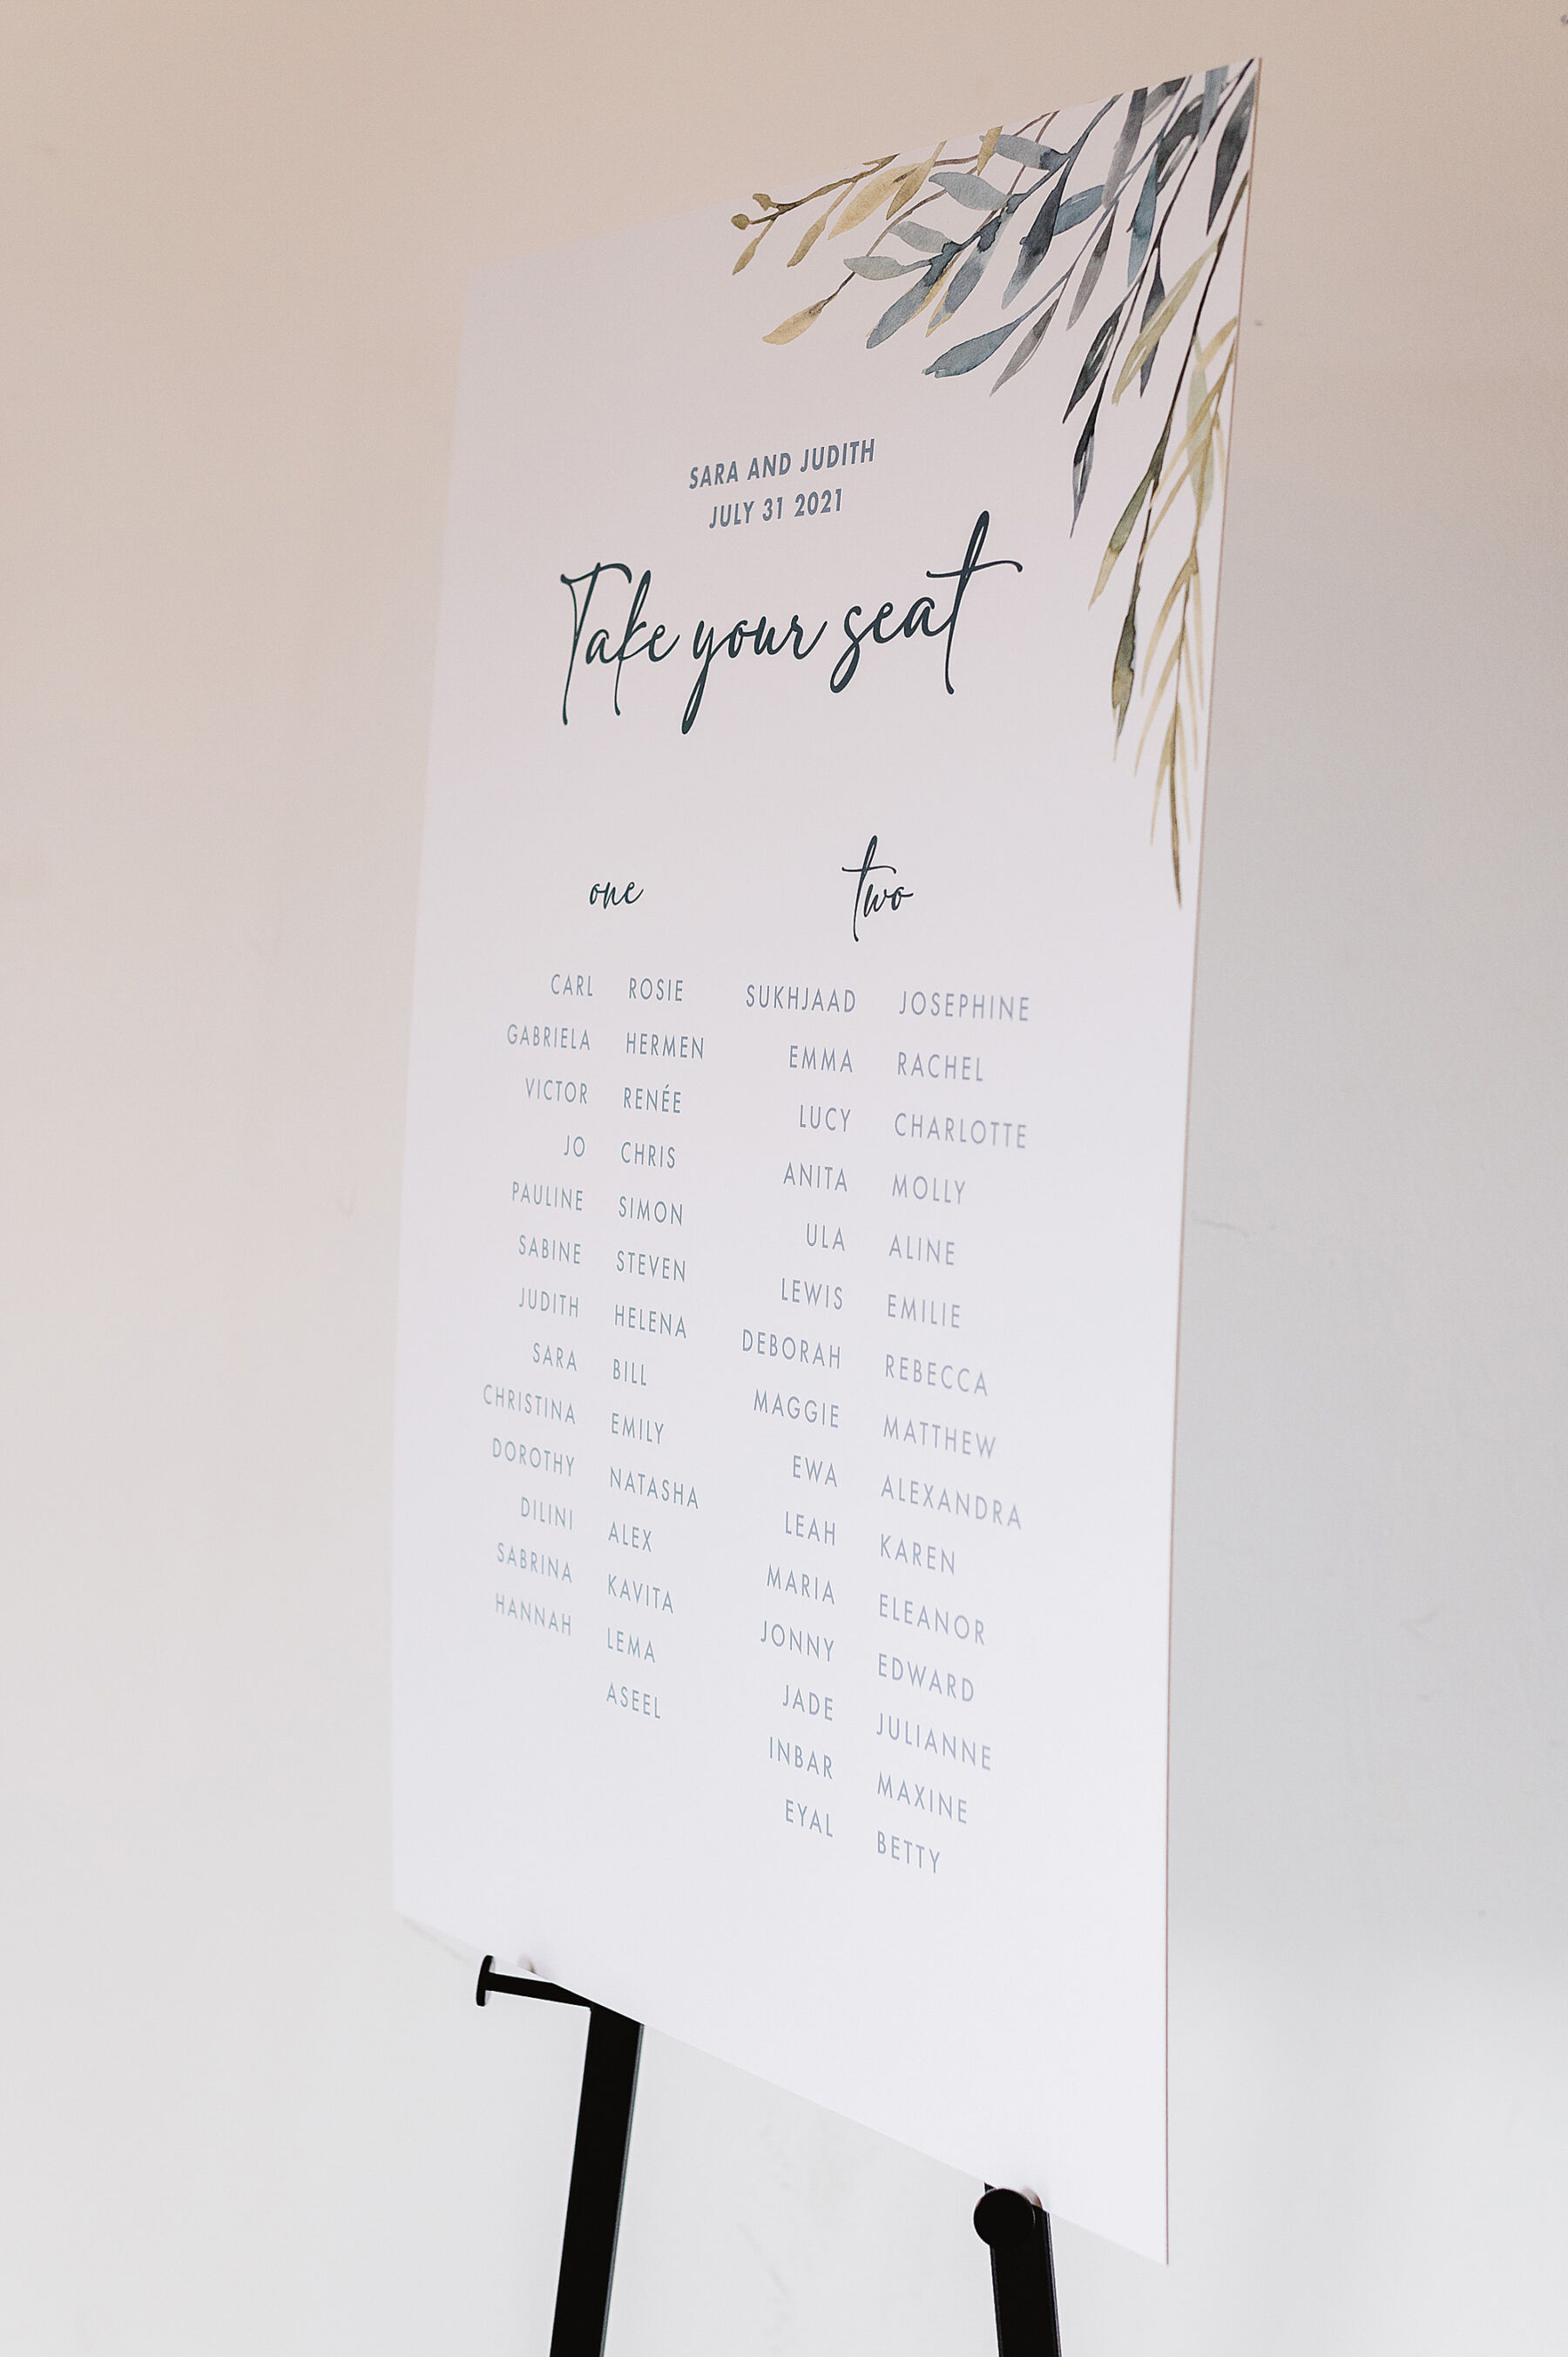 SARA AND JUDITH
JULY 31 2021
Take your seat
one
CARL ROSIE
GABRIELA HERMEN
VICTOR RENÉE
JO CHRIS
PAULINE SIMON
SABINE STEVEN
JUDITH HELENA
SARA BILL
CHRISTINA EMILY
DOROTHY NATASHA
DILINI ALEX
SABRINA KAVITA
HANNAH LEMA
ASEEL
two
SUKHJAAD JOSEPHINE
EMMA RACHEL
LUCY CHARLOTTE
ANITA MOLLY
ULA ALINE
LEWIS EMILIE
DEBORAH REBECCA
MAGGIE MATTHEW
EWA ALEXANDRA
LEAH KAREN
MARIA ELEANOR
JONNY EDWARD
JADE JULIANNE
INBAR MAXINE
EYAL BETTY